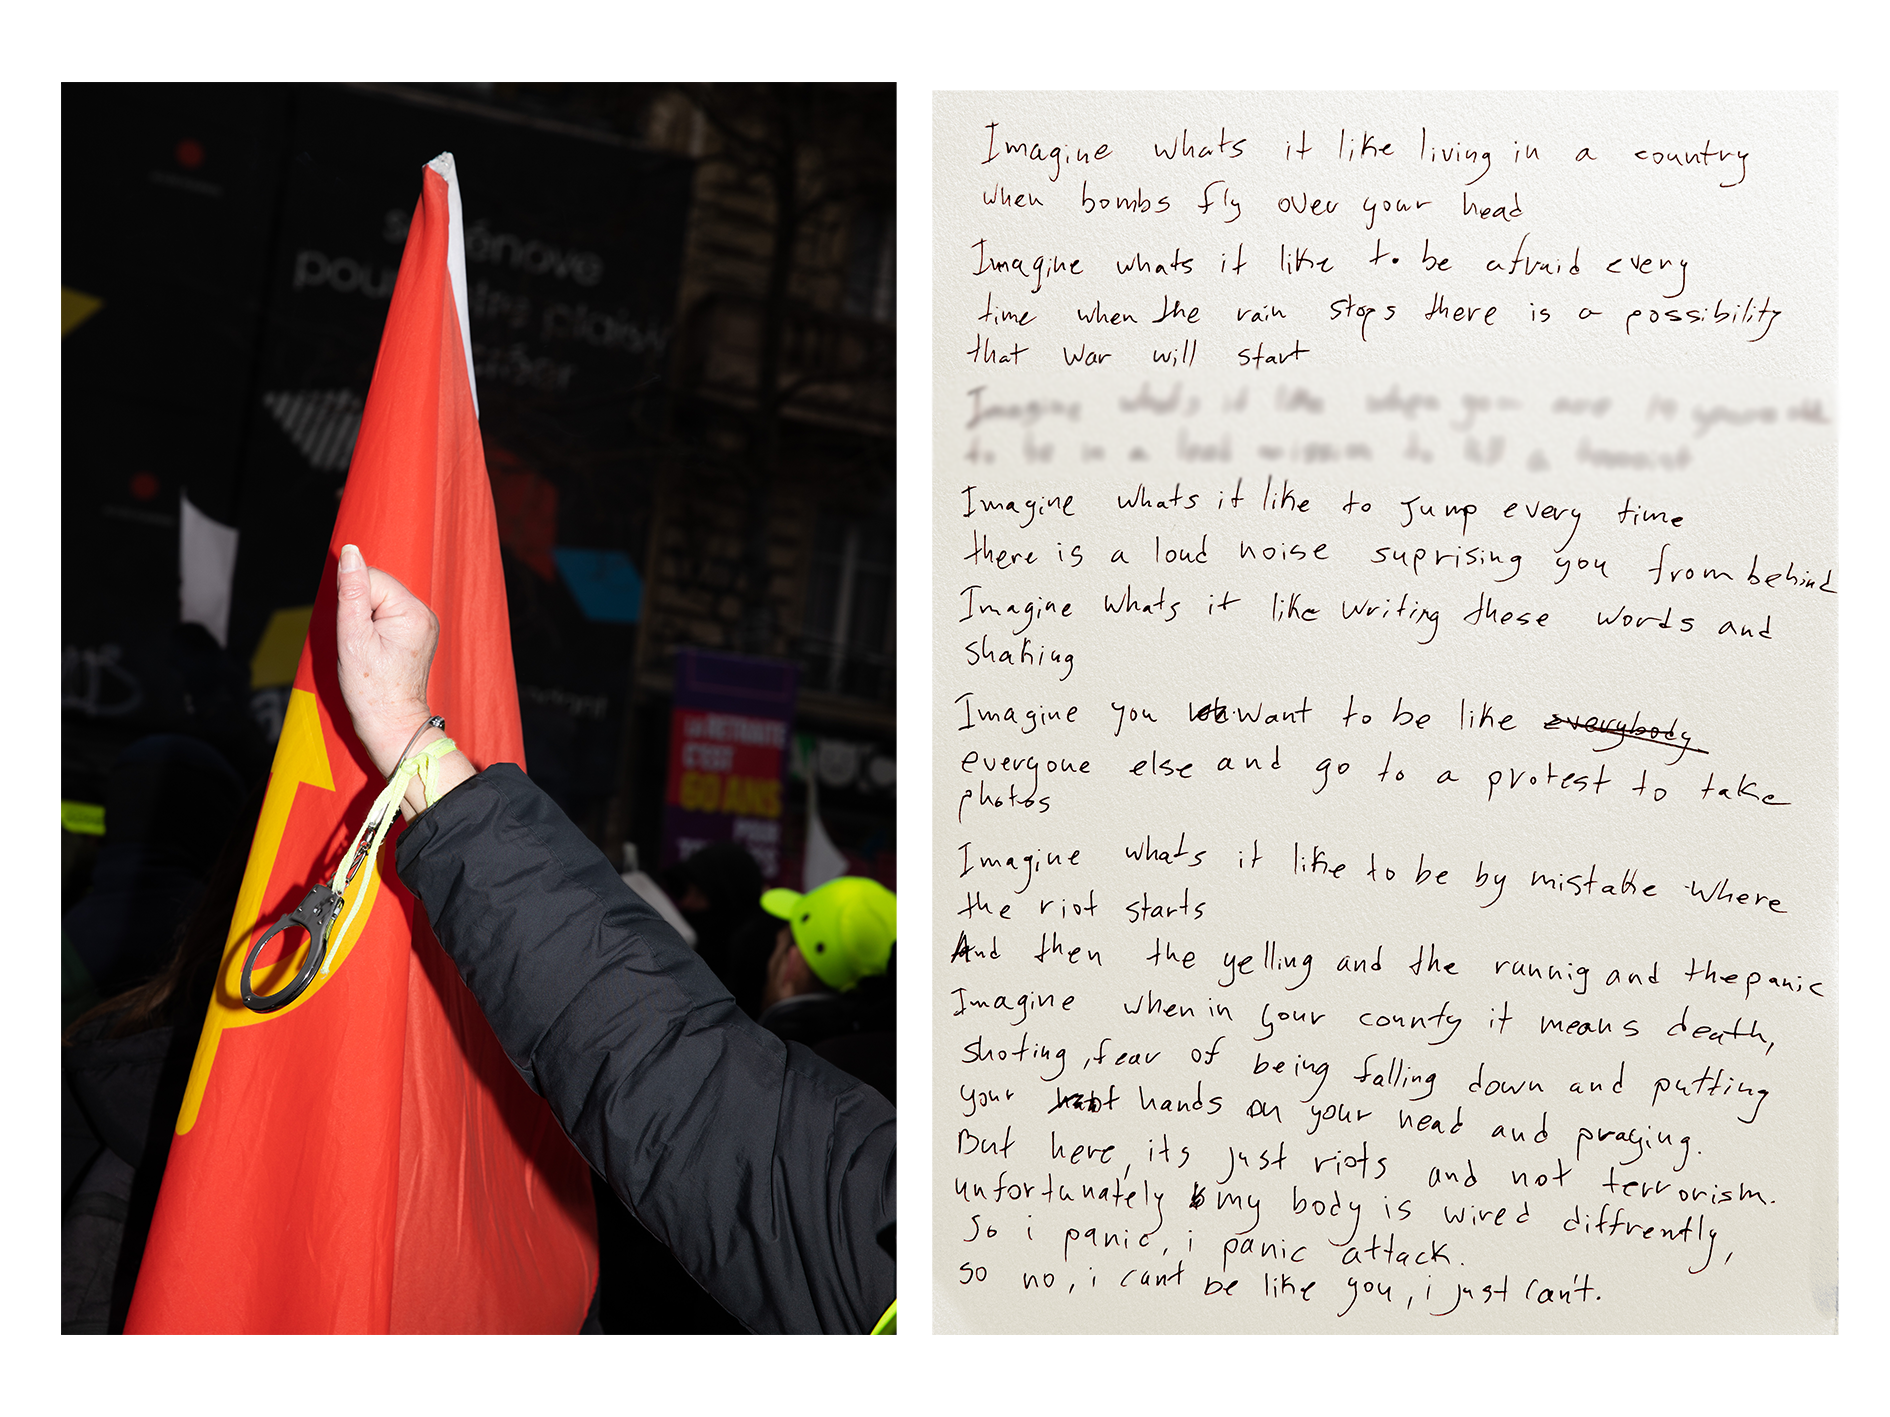 se rénove
pour
LA RETRAITE
C'EST
60 ANS
POUR
Imagine whats it like living in a country
when bombs fly over your head
Imagine whats it like to be afraid every
time when the rain stops there is a possibility
that war will start
Imagine whats it like when you are
to be in a
Imagine whats it like to jump every time
there is a loud noise suprising you from behind
Imagine whats it like writing these words and
shaking
Imagine you want to be like everybody
everyone else and go to a protest to take
photos
Imagine whats it like to be by mistake where
the riot starts
And then the yelling and the runnig and the panic
Imagine when in your county it means death,
shoting, fear of being falling down and putting
your hands on your head and praying.
But here, its just riots and not terrorism.
unfortunately my body is wired diffrently,
So i panic, i panic attack.
so no, i cant be like you, i just can't.